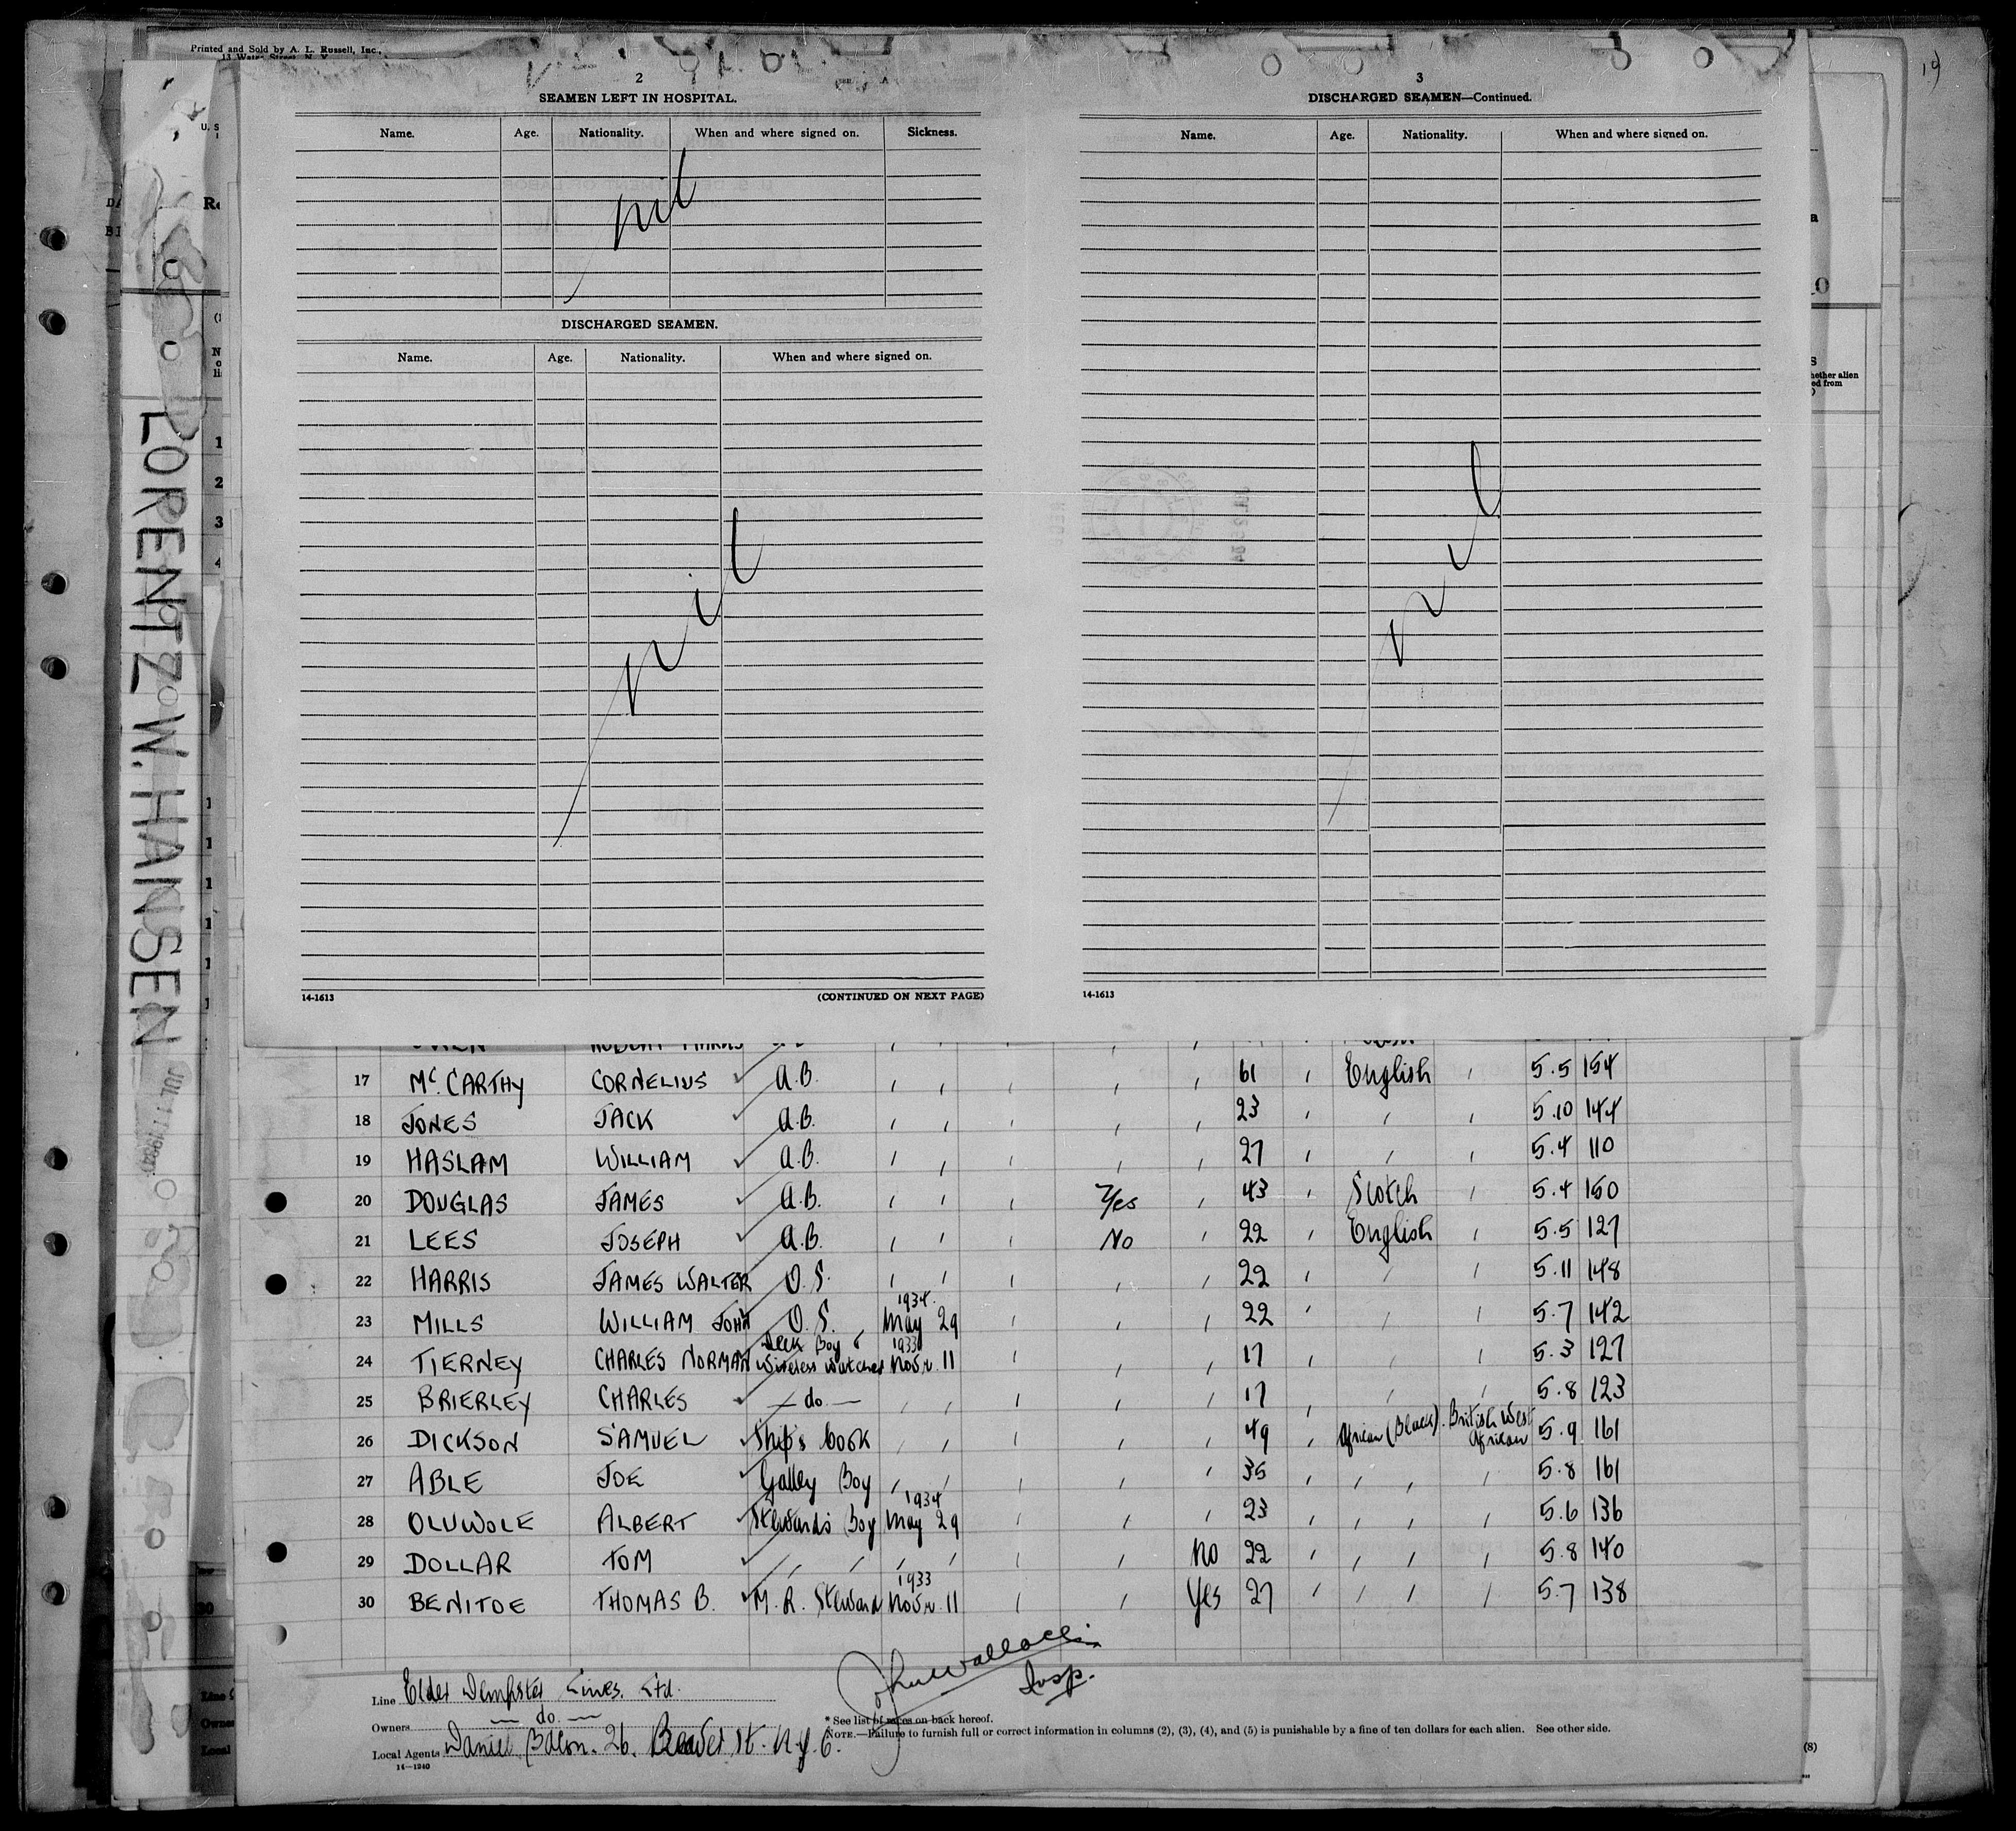 Printed and Sold by A. L. Russell, Inc.,
2
SEAMEN LEFT IN HOSPITAL.
Name. Age. Nationality. When and where signed on. Sickness.
nil
DISCHARGED SEAMEN.
Name. Age. Nationality. When and where signed on.
nil
14-1613 (CONTINUED ON NEXT PAGE)
3
DISCHARGED SEAMEN—Continued.
Name. Age. Nationality. When and where signed on.
nil
14-1613
LORENTZ W. HANSEN
17 McCARTHY CORNELIUS ✓ A.B. " " " " " 61 " English " 5.5 154
18 JONES JACK ✓ A.B. " " " " " 23 " " " 5.10 144
19 HASLAM WILLIAM ✓ A.B. " " " " " 27 " " " 5.4 110
20 DOUGLAS JAMES ✓ A.B. " " " Yes " 43 " Scotch " 5.4 150
21 LEES JOSEPH ✓ A.B. " " " No " 22 " English " 5.5 127
22 HARRIS JAMES WALTER O.S. " " " " " 22 " " " 5.11 148
23 MILLS WILLIAM JOHN O.S. 1934. May 29 " " " 22 " " " 5.7 142
24 TIERNEY CHARLES NORMAN Deck Boy & Wireless Watcher 1933 Novr. 11 " " " 17 " " " 5.3 127
25 BRIERLEY CHARLES ✓ — do — " " " " " 17 " " " 5.8 123
26 DICKSON SAMUEL ✓ Ship's Cook " " " " " 49 " African (Black). British West African 5.9 161
27 ABLE JOE ✓ Galley Boy " " " " " 35 " " " " 5.8 161
28 OLUWOLE ALBERT ✓ Steward's Boy 1934 May 29 " " " 23 " " " " 5.6 136
29 DOLLAR TOM ✓ " " " " " " No 22 " " " " 5.8 140
30 BENITOE THOMAS B. ✓ M.R. Steward 1933 Novr. 11 " " Yes 27 " " " " 5.7 138
John Wallace
Insp.
Line Elder Dempster Lines. Ltd.
Owners — do. —
Local Agents Daniel Bacon. 26. Beaver St. N.Y.C.
14—1240
* See list of races on back hereof.
NOTE.—Failure to furnish full or correct information in columns (2), (3), (4), and (5) is punishable by a fine of ten dollars for each alien. See other side.
(8)